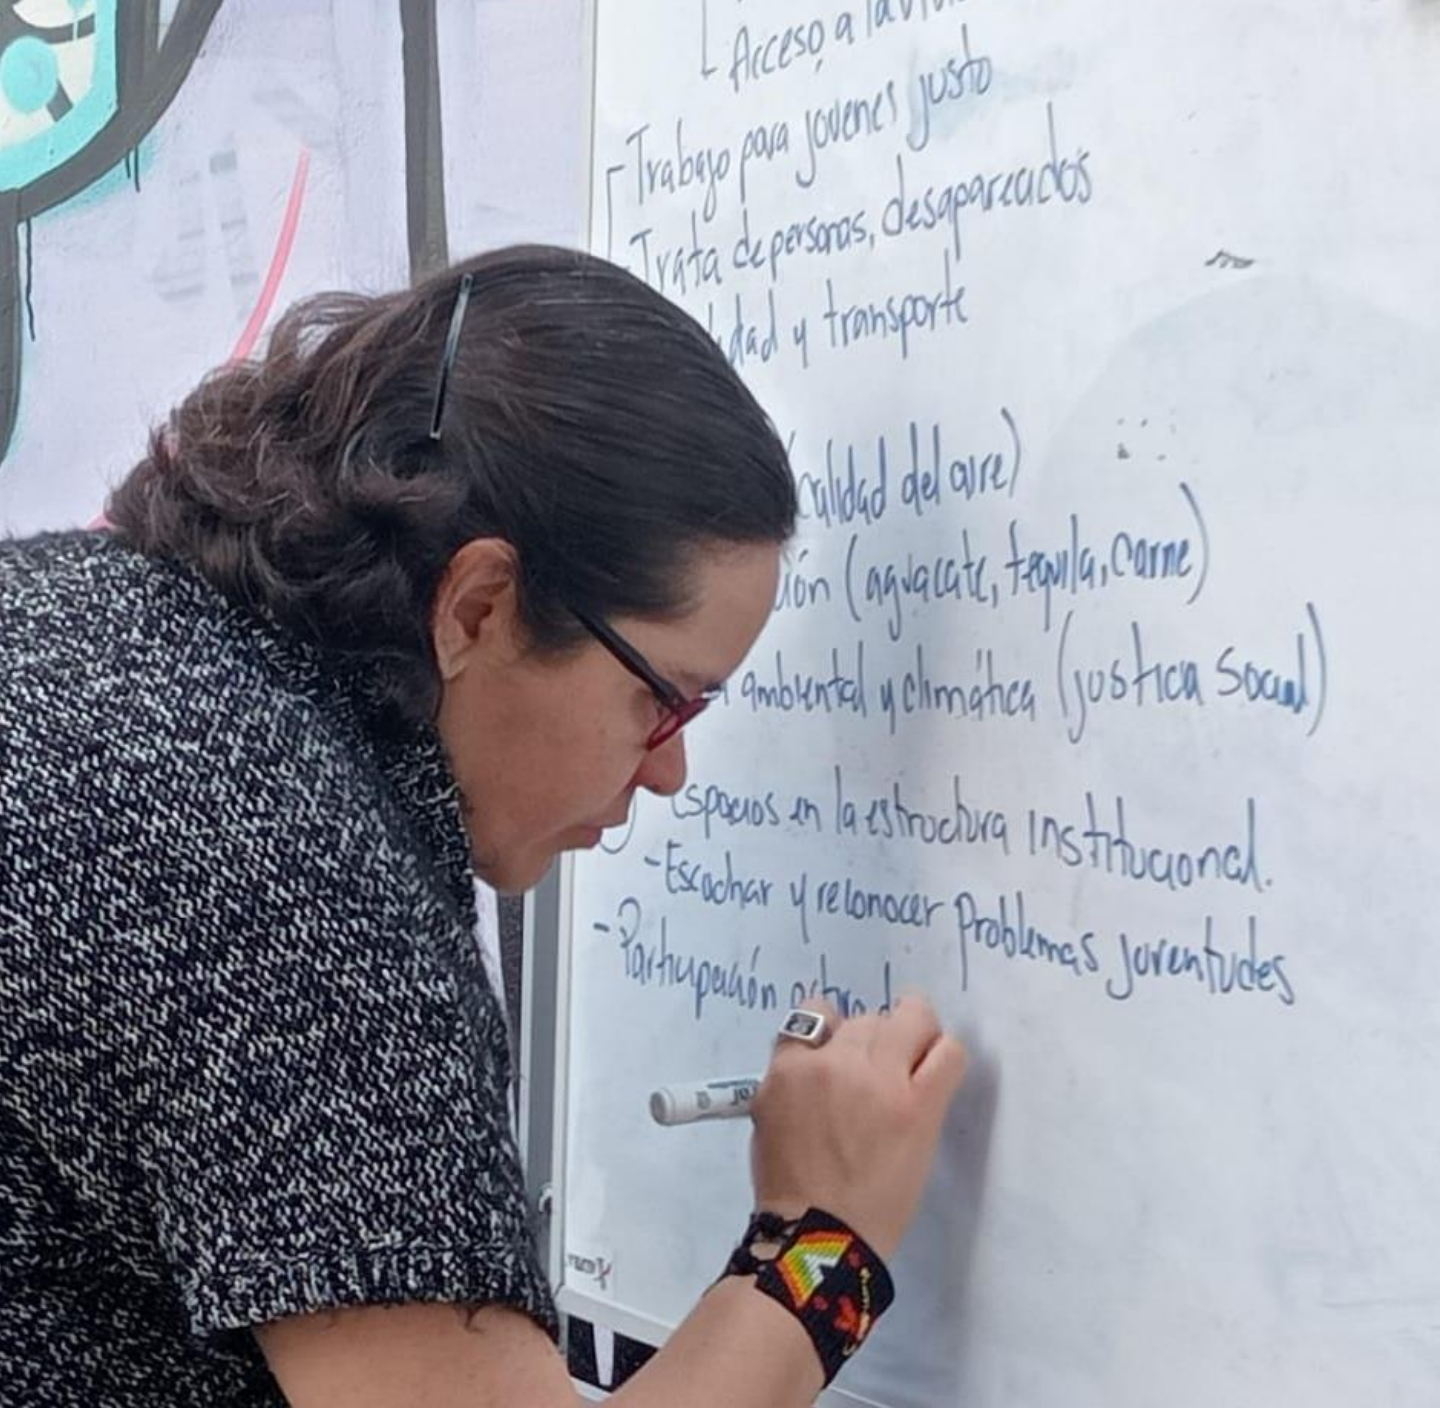 Acceso a la
- Trabajo para jovenes justo
Trata de personas, desaparecidos
dad y transporte
calidad del aire)
ión (aguacate, tequila, carne)
ambiental y climática (justicia social)
espacios en la estructura institucional.
- Escuchar y reconocer problemas juventudes
- Participación activa d